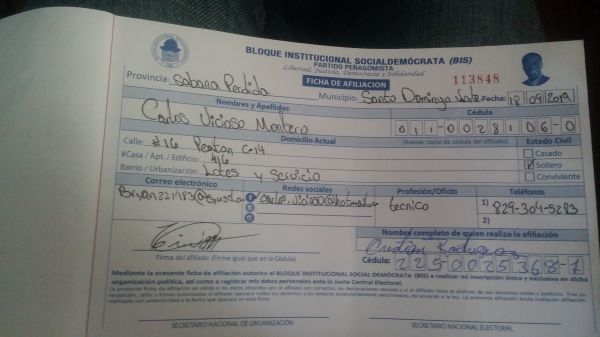 BLOQUE INSTITUCIONAL SOCIALDEMÓCRATA (BIS)
PARTIDO PEÑAGOMISTA
Libertad, Justicia, Democracia y Solidaridad
FICHA DE AFILIACIÓN
113848
Provincia: Sabana Perdida
Municipio: Santo Domingo Norte Fecha: 18/09/2019
Nombres y Apellidos
Cédula
Carlos Vicioso Montero
011-0028106-0
Domicilio Actual
(Anexar copia de cédula del afiliado)
Estado Civil
Calle: #16
#Casa / Apt. / Edificio:
Barrio / Urbanización: Lotes y Servicio
Casado
Soltero
Conviviente
Correo electrónico
Redes sociales
Profesión/Oficio
Teléfonos
tecnico
1) 829-304-5283
2)
Nombre completo de quien realiza la afiliación
Cédula: 225-0025368-7
Firma del afiliado (Firme igual que en la Cédula)
Mediante la presente ficha de afiliación autorizo al BLOQUE INSTITUCIONAL SOCIAL DEMÓCRATA (BIS) a realizar mi inscripción única y exclusiva en dicha
organización política, así como a registrar mis datos personales ante la Junta Central Electoral.
SECRETARIO NACIONAL DE ORGANIZACIÓN
SECRETARIO NACIONAL ELECTORAL